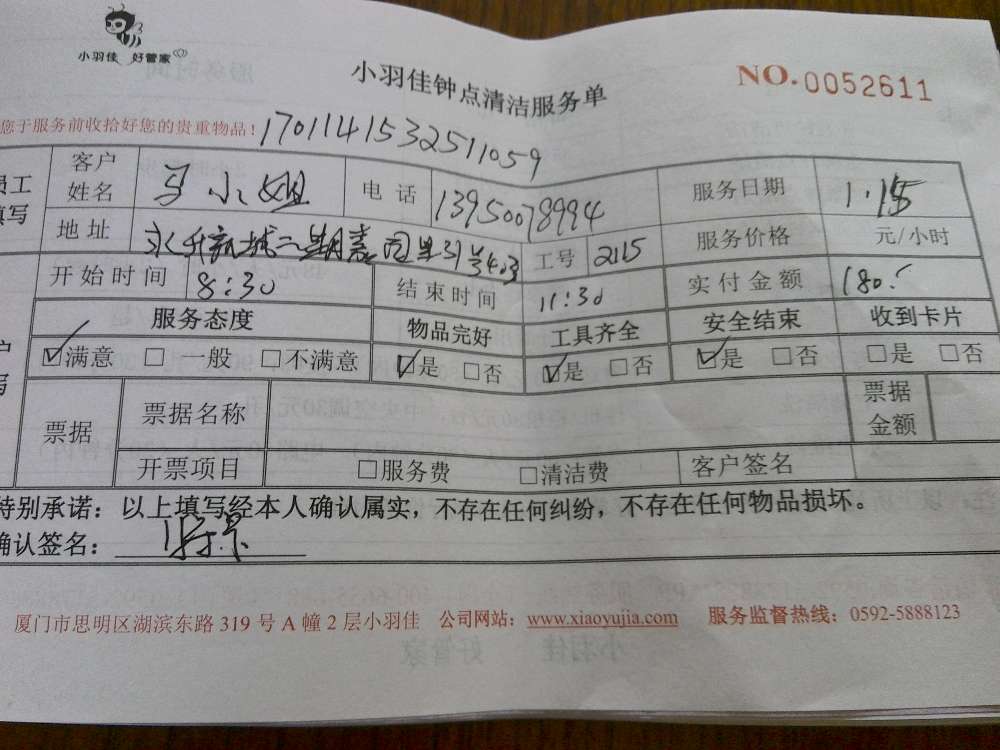 小羽佳 好管家
小羽佳钟点清洁服务单
NO.0052611
您于服务前收拾好您的贵重物品!
1701141532511059
员工
填写
客户姓名 马小姐 电话 13950078994 服务日期 1.15
地址 永升新城二期 工号 2115 服务价格 元/小时
开始时间 8:30 结束时间 11:30 实付金额 180.
服务态度 物品完好 工具齐全 安全结束 收到卡片
☑满意 □一般 □不满意 ☑是 □否 ☑是 □否 ☑是 □否 □是 □否
票据 票据名称 票据金额
开票项目 □服务费 □清洁费 客户签名
特别承诺：以上填写经本人确认属实，不存在任何纠纷，不存在任何物品损坏。
确认签名：
厦门市思明区湖滨东路 319 号 A 幢 2 层小羽佳 公司网站：www.xiaoyujia.com 服务监督热线：0592-5888123